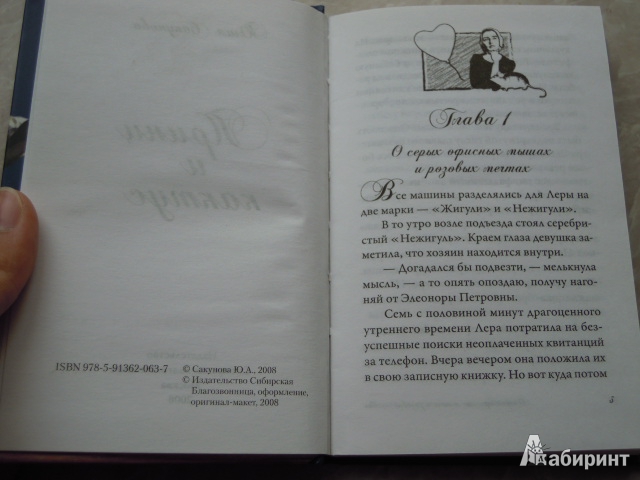 ISBN 978-5-91362-063-7
© Сакунова Ю.А., 2008
© Издательство Сибирская
Благозвонница, оформление,
оригинал-макет, 2008
Глава 1
О серых офисных мышах
и розовых мечтах
Все машины разделялись для Леры на
две марки — «Жигули» и «Нежигули».
В то утро возле подъезда стоял серебри-
стый «Нежигуль». Краем глаза девушка за-
метила, что хозяин находится внутри.
— Догадался бы подвезти, — мелькнула
мысль, — а то опять опоздаю, получу наго-
няй от Элеоноры Петровны.
Семь с половиной минут драгоценного
утреннего времени Лера потратила на без-
успешные поиски неоплаченных квитанций
за телефон. Вчера вечером она положила их
в свою записную книжку. Но вот куда потом
3
Лабиринт